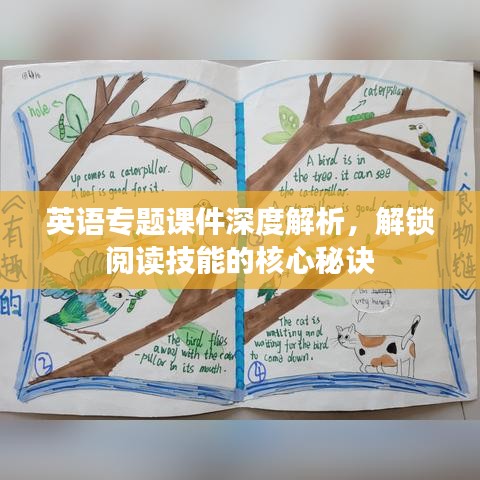 hole
Up comes a caterpillar.
A leaf is good for it.
The bird flies
away with the cater
-pillar in its mouth.
②
《有趣的
英语专题课件深度解析，解锁
阅读技能的核心秘诀
caterpillar
A bird is in
the tree. it can see
the caterpillar.
The cat is
waitting and
waiting for the bird
to come down.
very hungry
④
食物链》